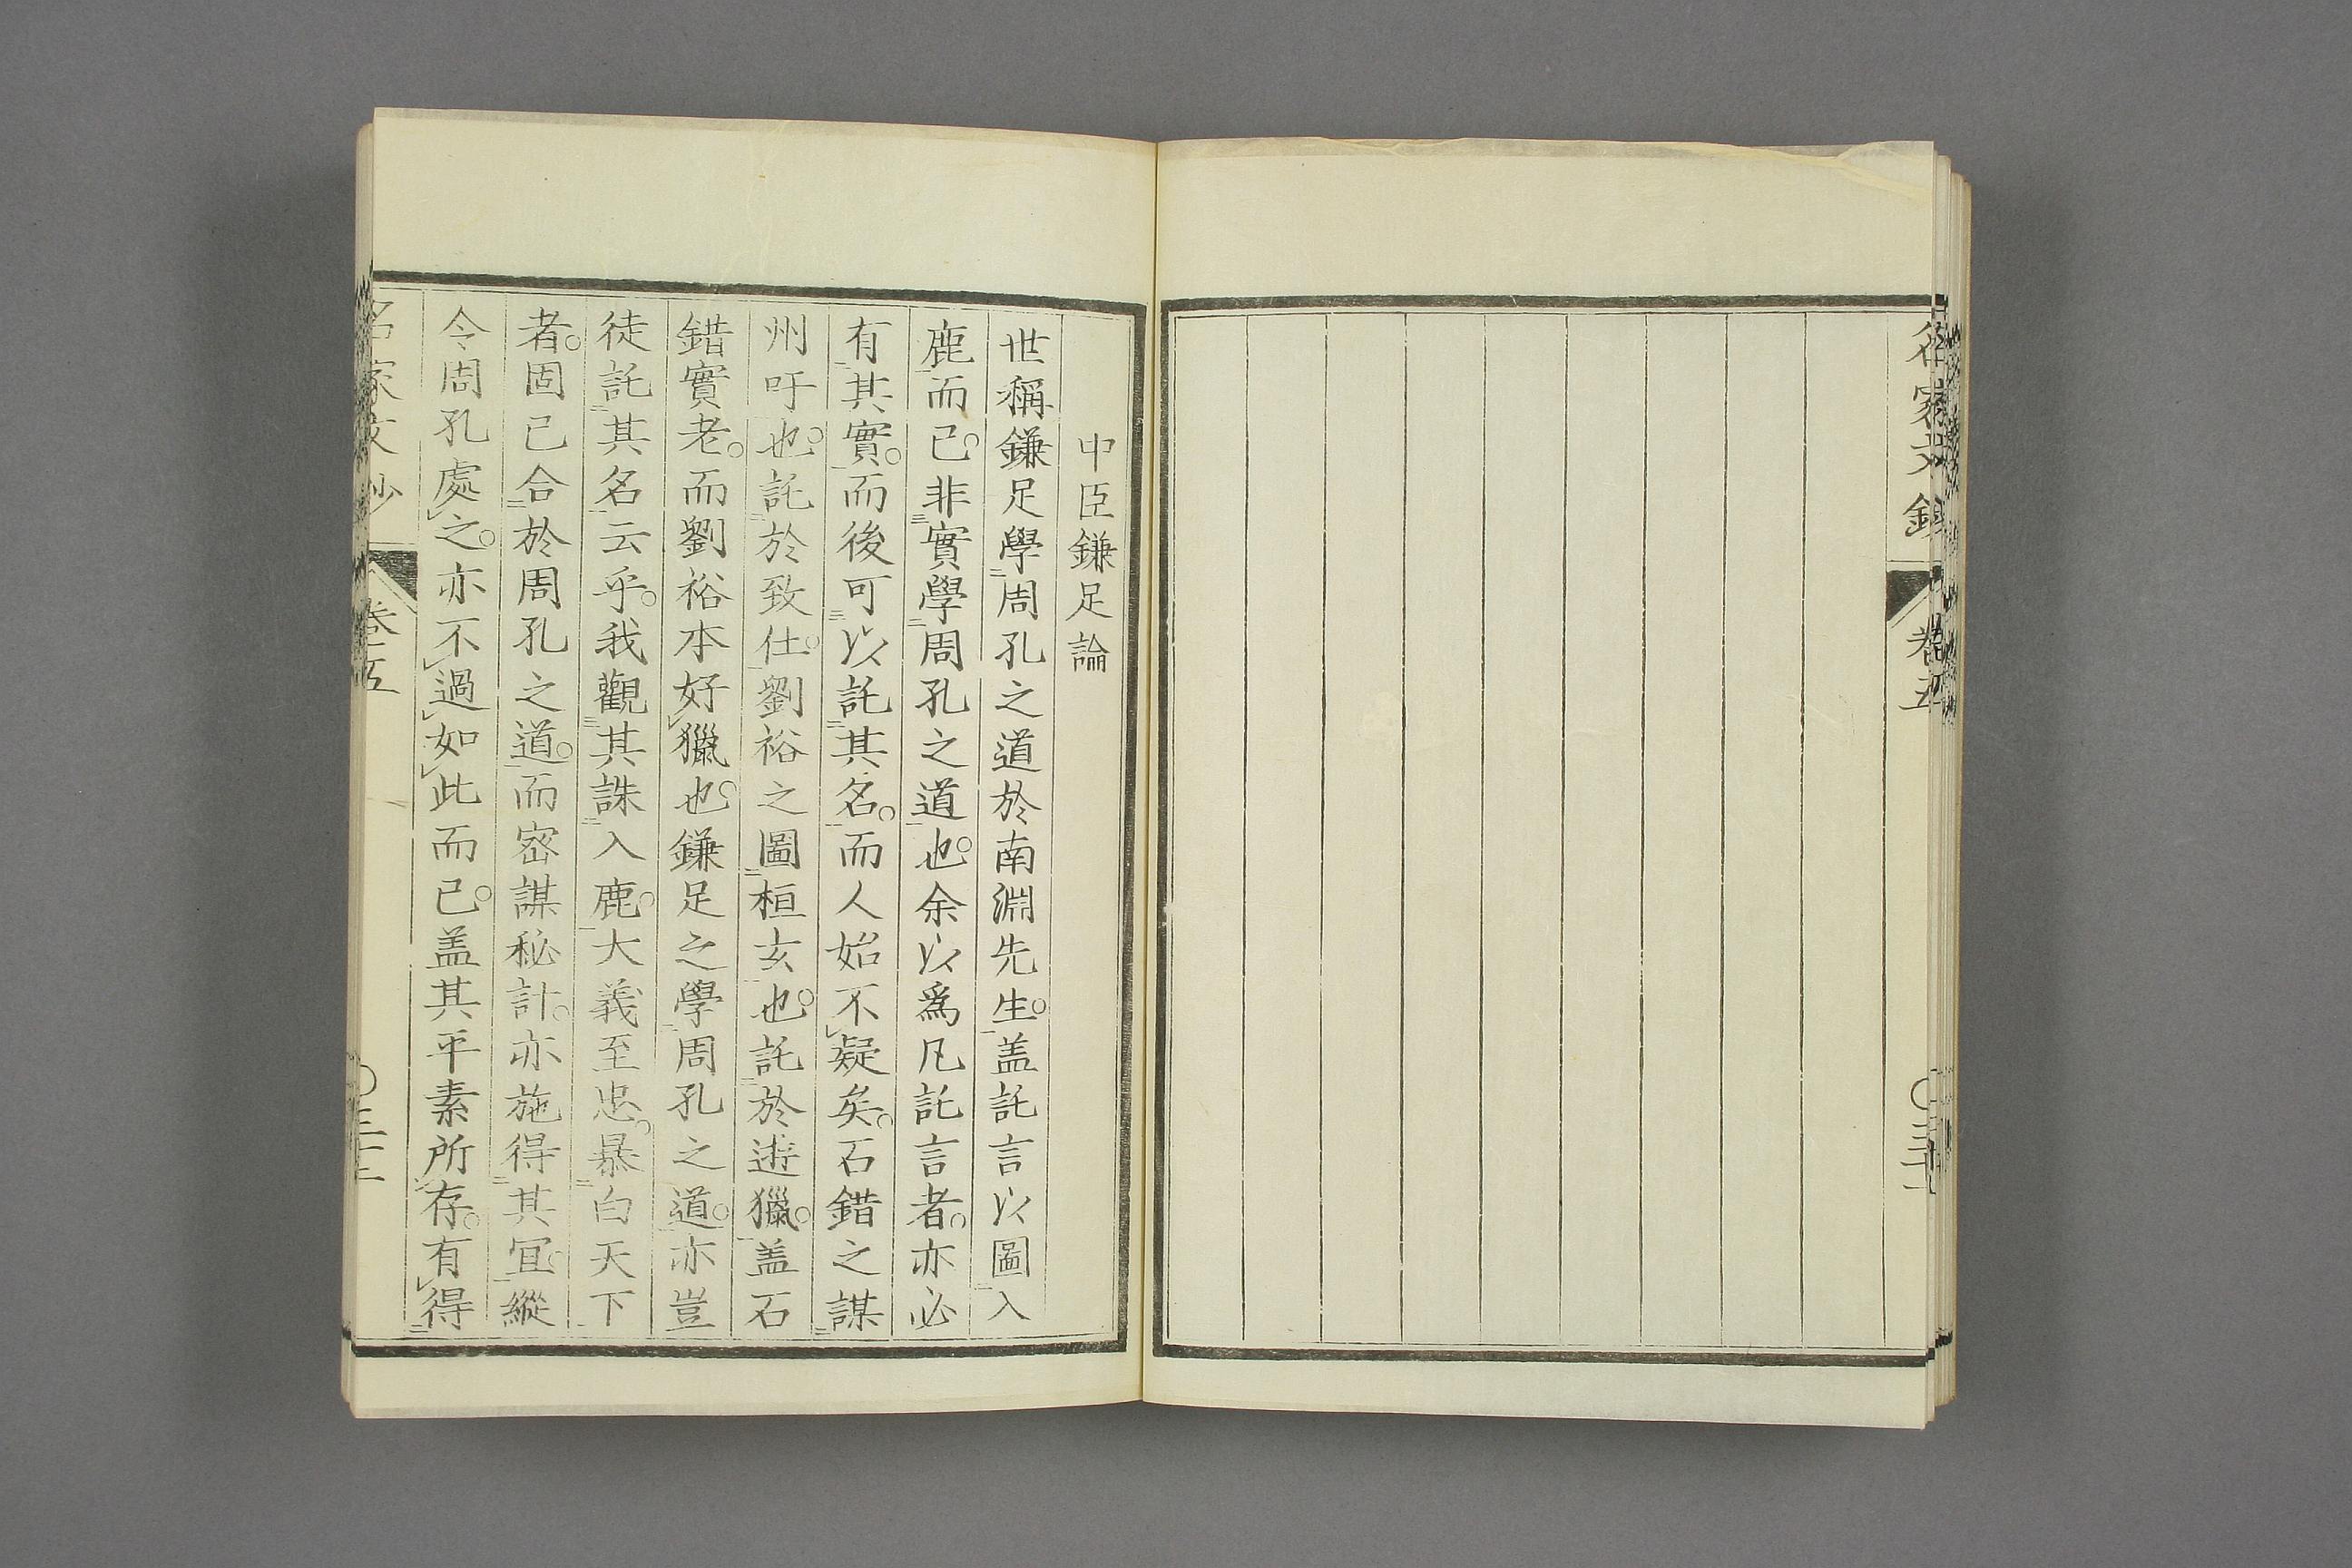 名家文鈔
卷五
中臣鎌足論
世稱鎌足學周孔之道於南淵先生。盖託言以圖入
鹿而已。非實學周孔之道也。余以爲凡託言者。亦必
有其實。而後可以託其名。而人始不疑矣。石錯之謀
州吁也。託於致仕。劉裕之圖桓玄也。託於遊獵。盖石
錯實老。而劉裕本好獵也。鎌足之學周孔之道。亦豈
徒託其名云乎。我觀其誅入鹿。大義至忠。暴白天下
者。固已合於周孔之道。而密謀秘計。亦施得其宜。縱
令周孔處之。亦不過如此而已。盖其平素所存。有得
名家文鈔
卷五